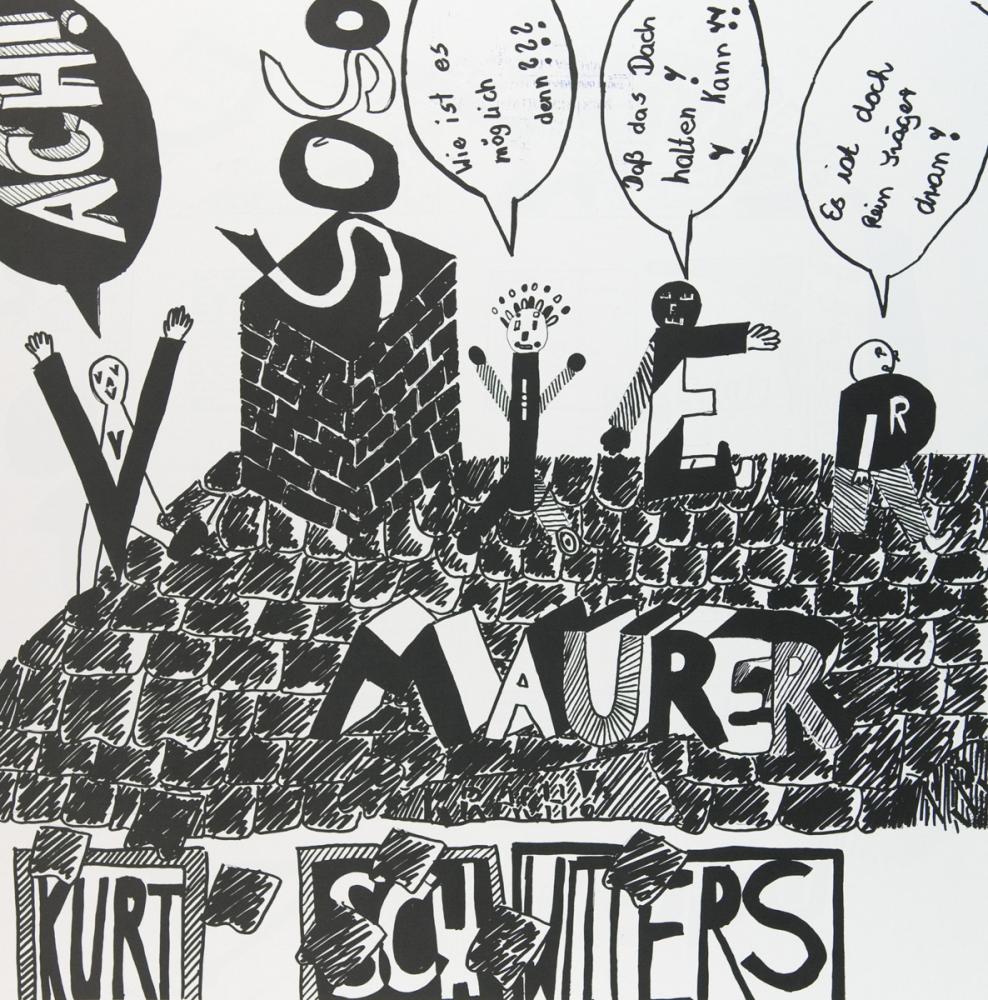 ACH!
SOSO
Wie ist es
möglich
denn ???
Daß das Dach
halten !
! Kann !!
Es ist doch
kein Träger
dran !
VIER
MAURER
KRACH!
KURT SCHWITTERS